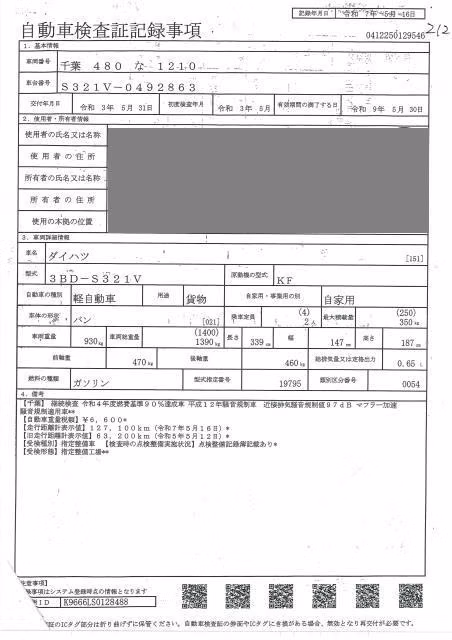 記録年月日 令和 7年 5月 16日
自動車検査証記録事項
0412250129546
212
1. 基本情報
車両番号 千葉 480 な 1210
車台番号 S321V-0492863
交付年月日 令和 3年 5月 31日 初度検査年月 令和 3年 5月 有効期間の満了する日 令和 9年 5月 30日
2. 使用者・所有者情報
使用者の氏名又は名称
使用者の住所
所有者の氏名又は名称
所有者の住所
使用の本拠の位置
3. 車両詳細情報
車名 ダイハツ [151]
型式 3BD-S321V 原動機の型式 KF
自動車の種別 軽自動車 用途 貨物 自家用・事業用の別 自家用
車体の形状 バン [021] 乗車定員 (4) 2人 最大積載量 (250) 350kg
車両重量 930kg 車両総重量 (1400) 1390kg 長さ 339cm 幅 147cm 高さ 187cm
前軸重 470kg 後軸重 460kg 総排気量又は定格出力 0.65 L
燃料の種類 ガソリン 型式指定番号 19795 類別区分番号 0054
4. 備考
【千葉】 継続検査 令和4年度燃費基準90%達成車 平成12年騒音規制車 近接排気騒音規制値97dB マフラー加速
騒音規制適用車**
【自動車重量税額】¥6,600*
【走行距離計表示値】127,100km(令和7年5月16日)*
【旧走行距離計表示値】63,200km(令和5年5月12日)*
【受検種別】指定整備車 【検査時の点検整備実施状況】点検整備記録簿記載あり*
【受検形態】指定整備工場**
注意事項】
事項はシステム登録時点の情報となります
ID K9666LS0128488
証のICタグ部分は折り曲げずに保管ください。自動車検査証の券面やICタグにき損がある場合、無効となり再交付が必要です。